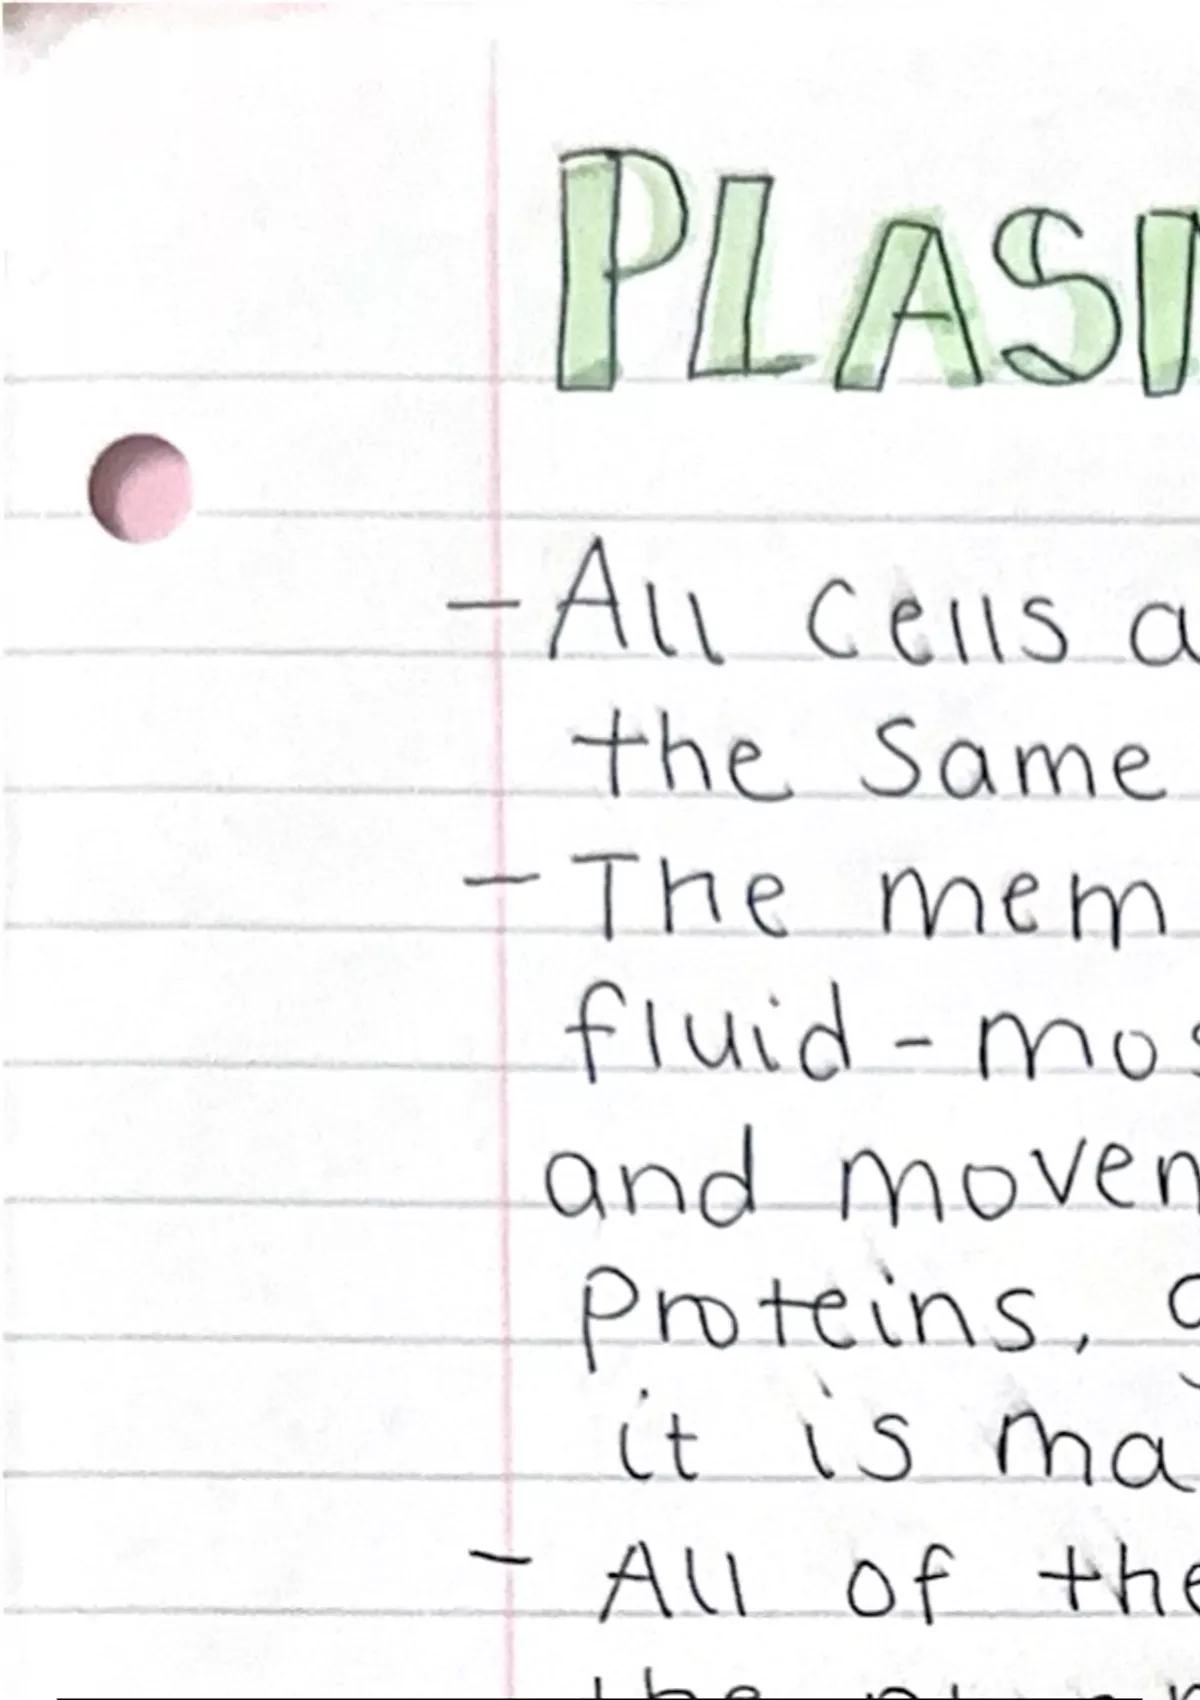 PLASM
- All cells a
the same
- The mem
fluid - mos
and movem
proteins, g
it is ma
- All of the
the